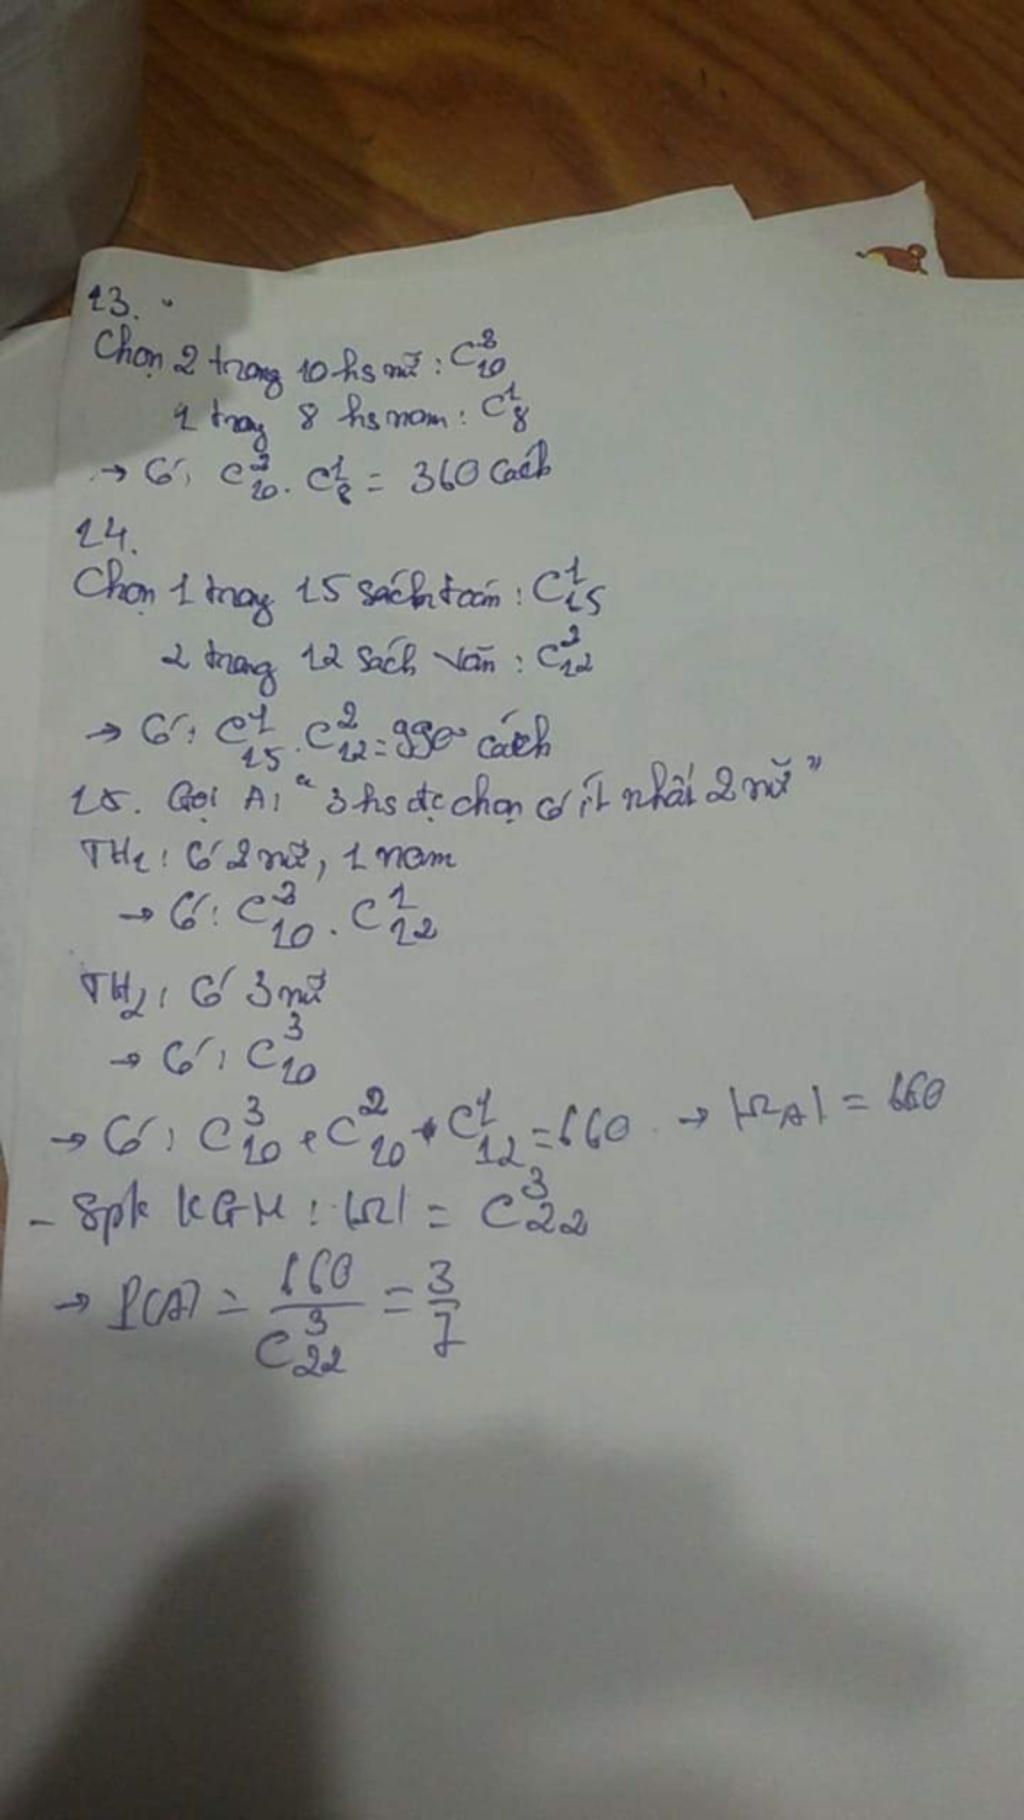 13.
Chọn 2 trong 10 hs nữ : C²₁₀
1 trong 8 hs nam : C¹₈
→ Có: C²₁₀ . C¹₈ = 360 cách
14.
Chọn 1 trong 15 sách toán : C¹₁₅
2 trong 12 sách văn : C²₁₂
→ Có: C¹₁₅ . C²₁₂ = 990 cách
15. Gọi A: "3 hs đc chọn có ít nhất 2 nữ"
TH₁ : Có 2 nữ, 1 nam
→ Có: C²₁₀ . C¹₁₂
TH₂ : Có 3 nữ
→ Có: C³₁₀
→ Có: C³₁₀ + C²₁₀ . C¹₁₂ = 660 → |Ω_A| = 660
- Spt KGM : |Ω| = C³₂₂
→ P(A) = 660 / C³₂₂ = 3/7